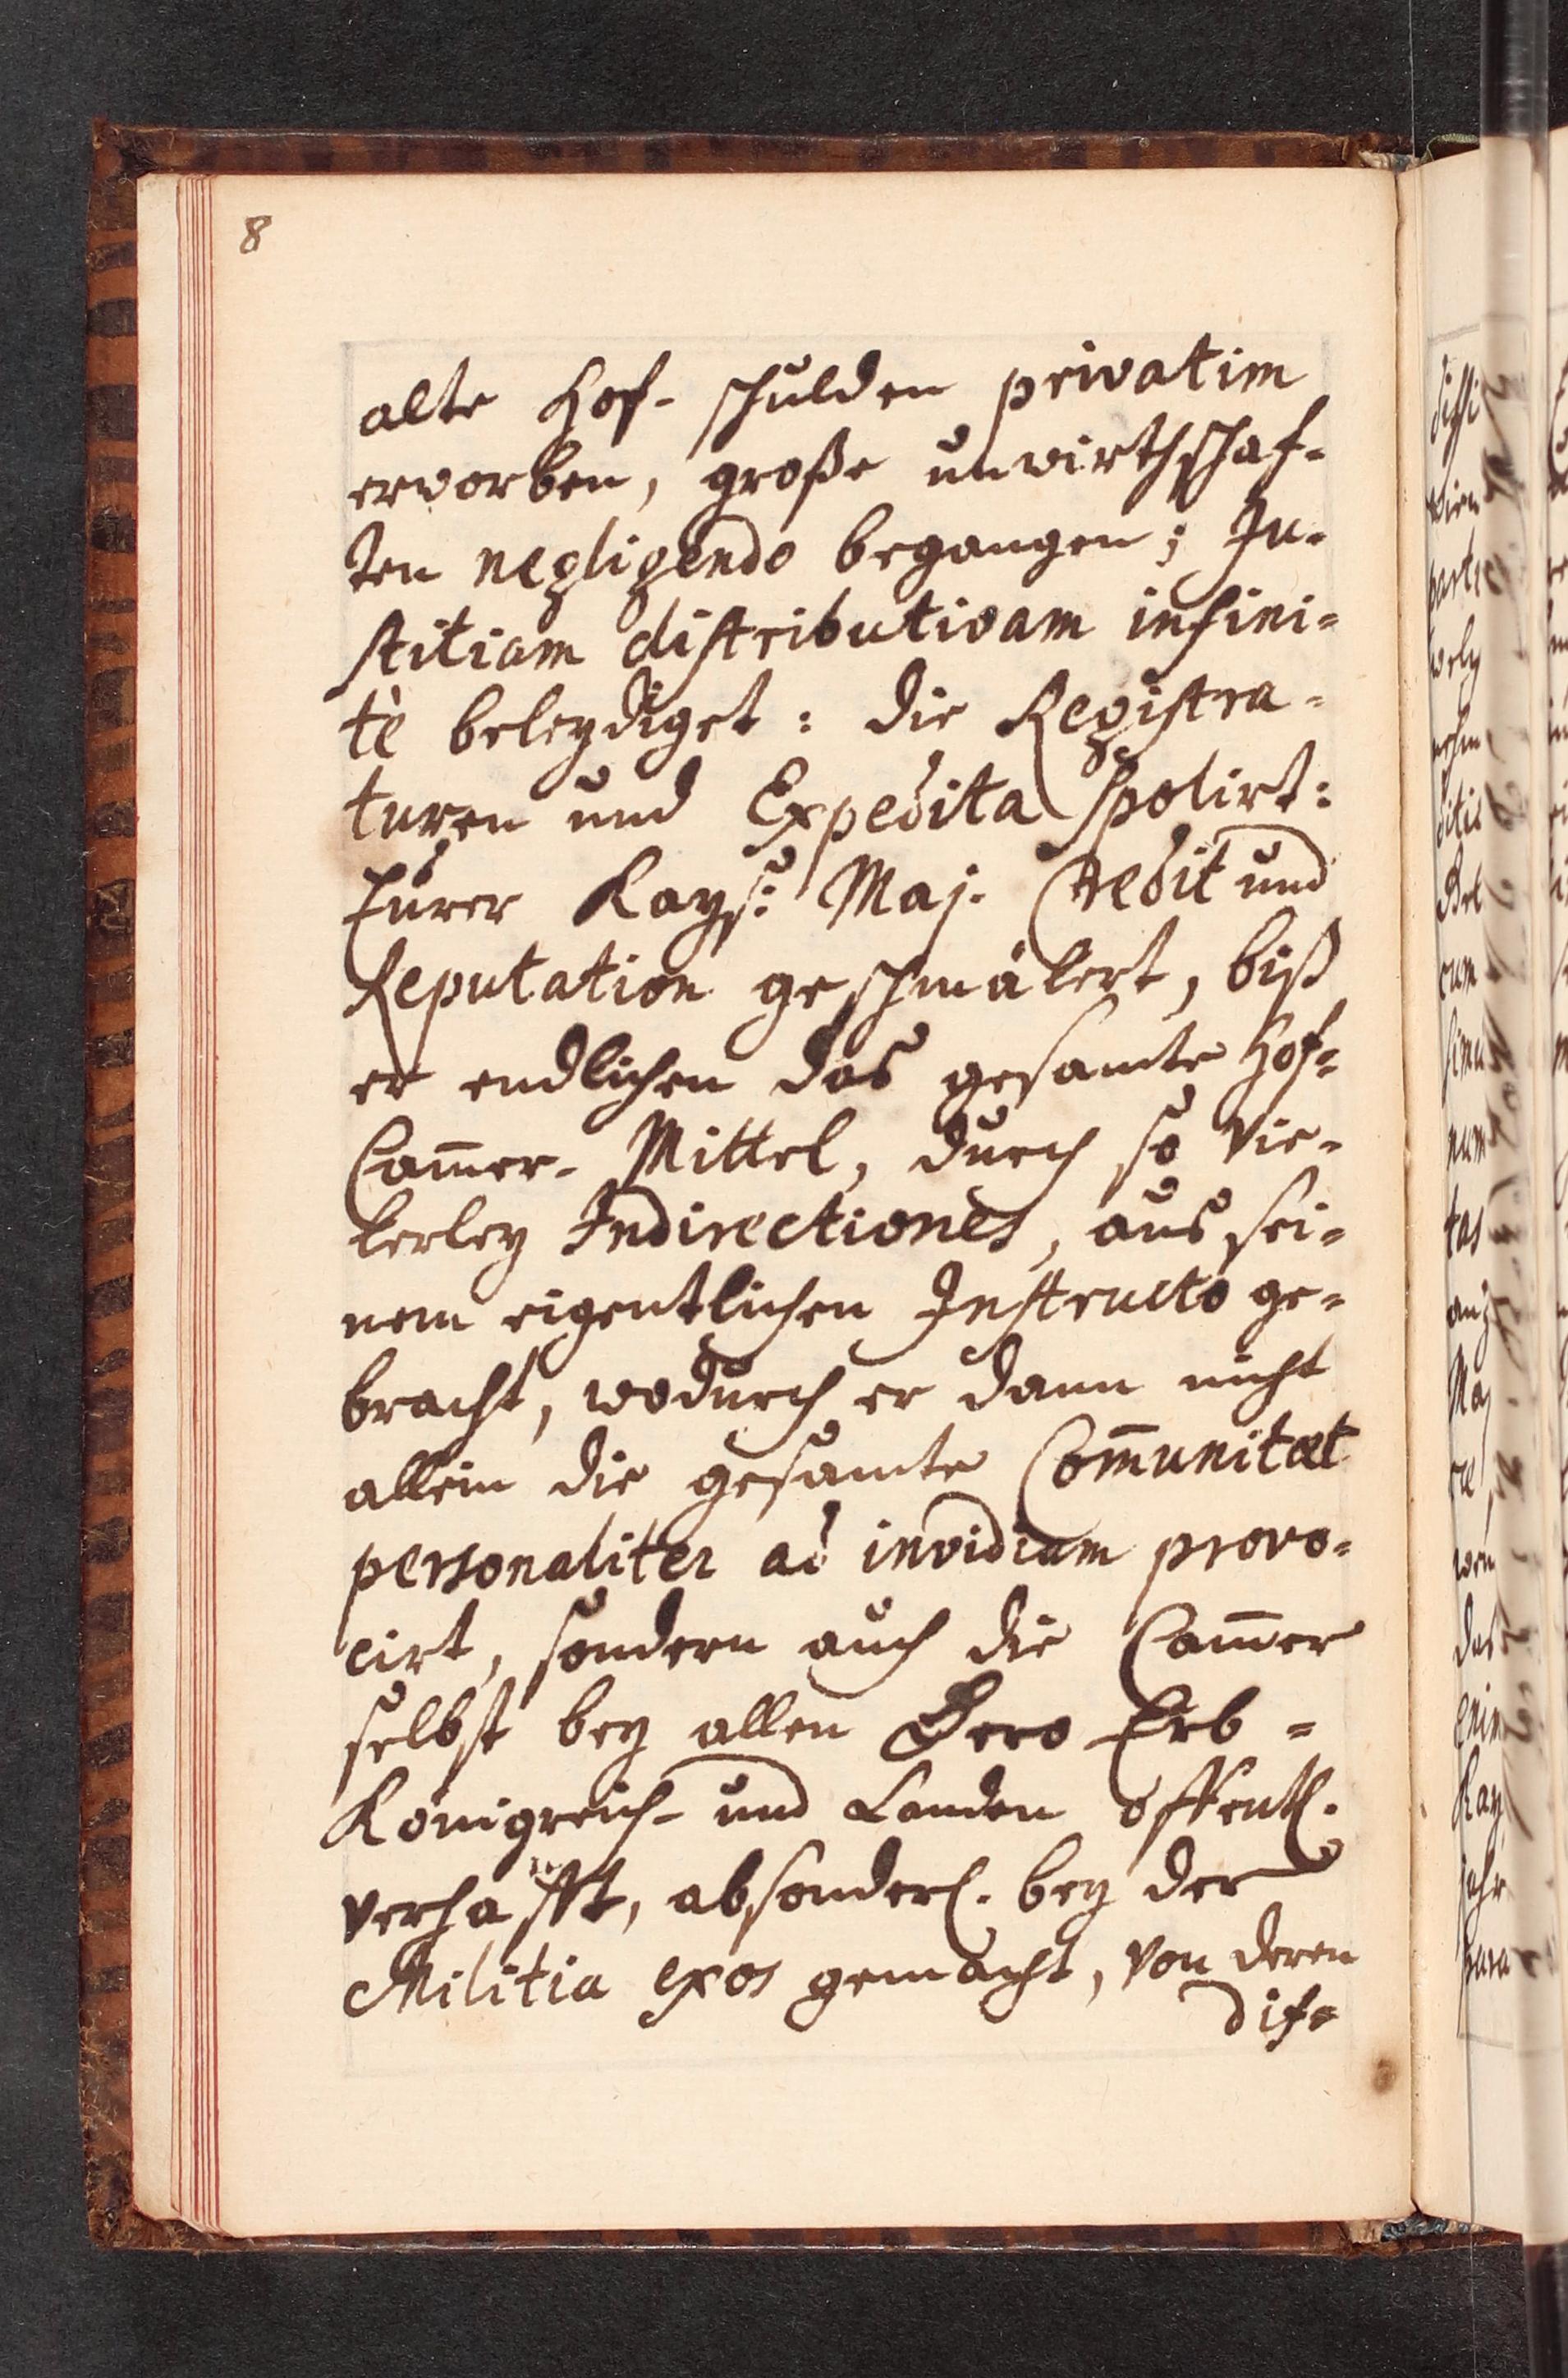 8
alte Hof- schulden privatim
erworben, große unwirthschaf-
ten negligendo begangen; Ju-
stitiam distributivam infini=
tè beleydiget: die Registra-
turen und Expedita spolirt:
Eurer Kays: Maj. Credit und
Reputation geschmälert, biß
er endlichen das gesamte Hof=
Cam̄er- Mittel, durch so vie-
lerley Indirectiones, aus sei=
nem eigentlichen Instructo ge=
bracht, wodurch er dann nicht
allein die gesamte Com̄unitæt
personaliter ad invidiam provo=
cirt, sondern auch die Cam̄er
selbst bey allen Dero Erb =
Königreich- und Landen öffentl.
verhasst, absonderl. bey der
Militia exos gemacht, von deren
dif=